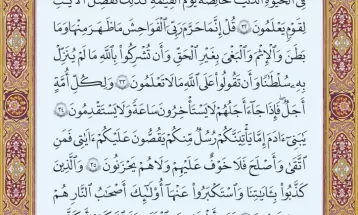 فِى ٱلْحَيَوٰةِ ٱلدُّنْيَا خَالِصَةً يَوْمَ ٱلْقِيَٰمَةِ كَذَٰلِكَ نُفَصِّلُ ٱلْءَايَٰتِ
لِقَوْمٍ يَعْلَمُونَ ٣٢ قُلْ إِنَّمَا حَرَّمَ رَبِّىَ ٱلْفَوَٰحِشَ مَا ظَهَرَ مِنْهَا وَمَا
بَطَنَ وَٱلْإِثْمَ وَٱلْبَغْىَ بِغَيْرِ ٱلْحَقِّ وَأَن تُشْرِكُوا۟ بِٱللَّهِ مَا لَمْ يُنَزِّلْ
بِهِۦ سُلْطَٰنًا وَأَن تَقُولُوا۟ عَلَى ٱللَّهِ مَا لَا تَعْلَمُونَ ٣٣ وَلِكُلِّ أُمَّةٍ
أَجَلٌ فَإِذَا جَآءَ أَجَلُهُمْ لَا يَسْتَأْخِرُونَ سَاعَةً وَلَا يَسْتَقْدِمُونَ ٣٤
يَٰبَنِىٓ ءَادَمَ إِمَّا يَأْتِيَنَّكُمْ رُسُلٌ مِّنكُمْ يَقُصُّونَ عَلَيْكُمْ ءَايَٰتِى فَمَنِ
ٱتَّقَىٰ وَأَصْلَحَ فَلَا خَوْفٌ عَلَيْهِمْ وَلَا هُمْ يَحْزَنُونَ ٣٥ وَٱلَّذِينَ
كَذَّبُوا۟ بِـَٔايَٰتِنَا وَٱسْتَكْبَرُوا۟ عَنْهَآ أُو۟لَٰٓئِكَ أَصْحَٰبُ ٱلنَّارِ هُمْ